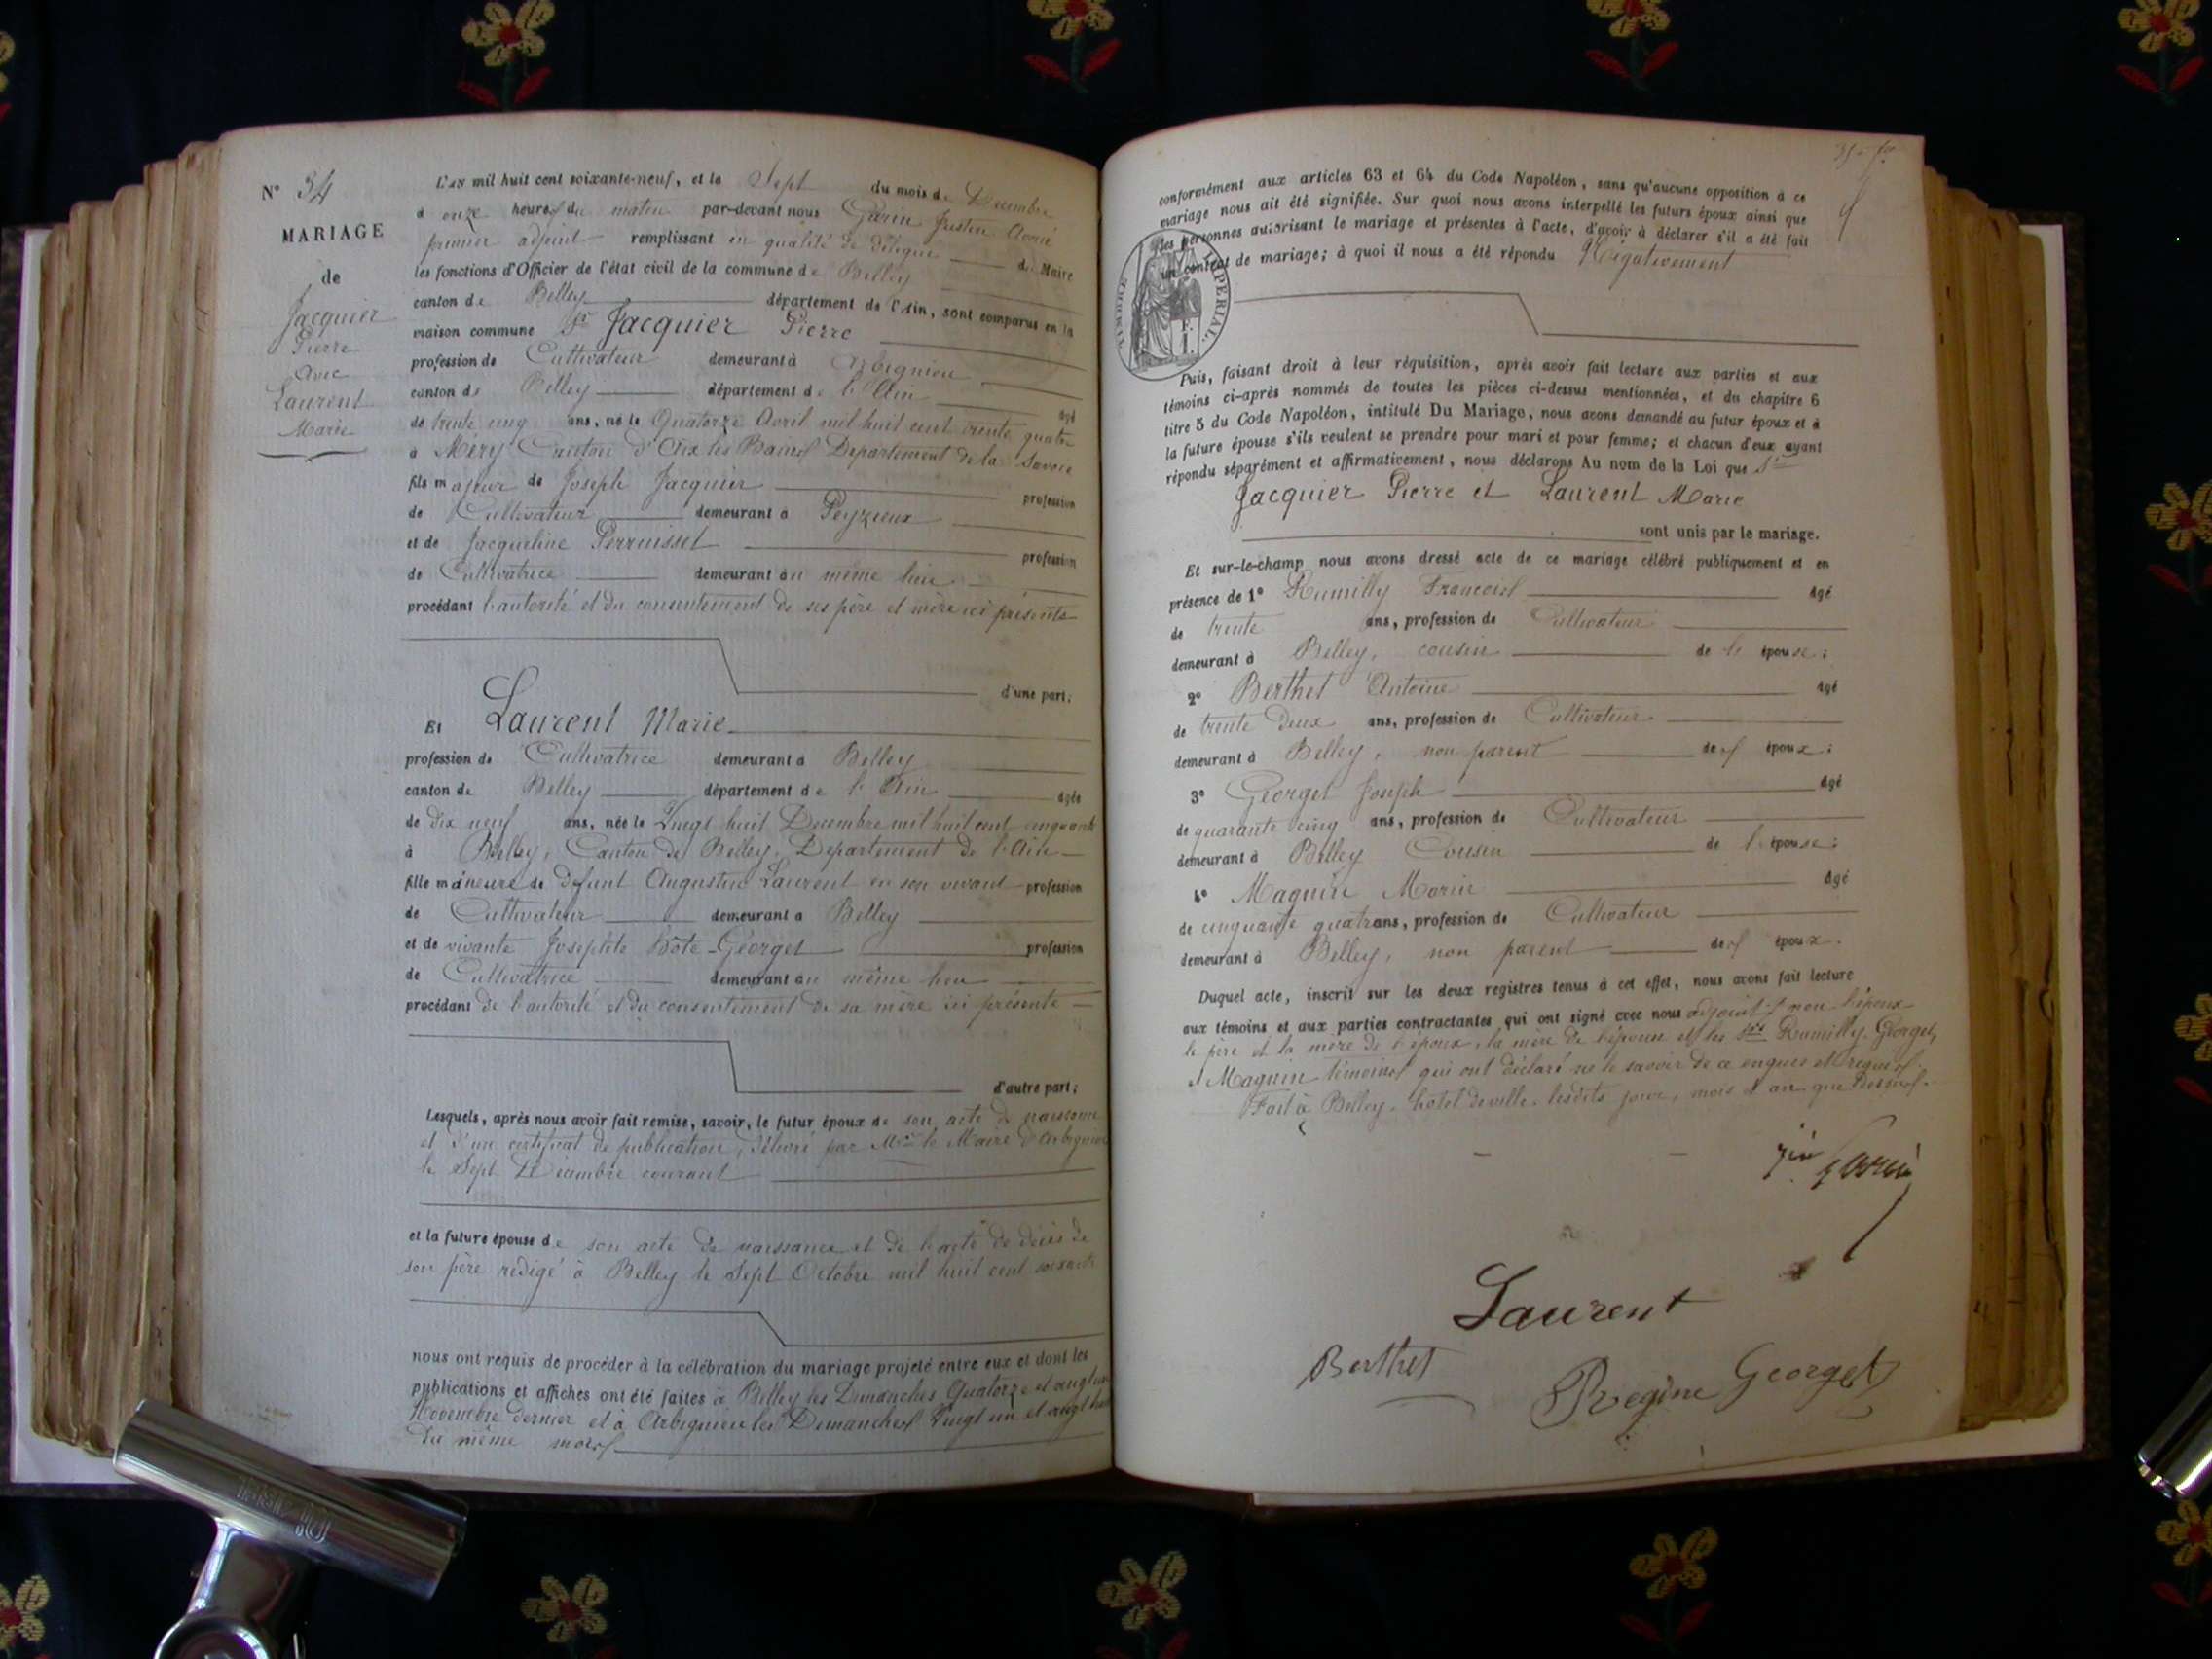 N° 34
MARIAGE
de
Jacquier
Pierre
Avec
Laurent
Marie
L'AN mil huit cent soixante-neuf, et le Sept du mois de Decembre
à onze heures du matin par-devant nous Garin Justin
premier adjoint remplissant en qualité de délégué du Maire
les fonctions d'Officier de l'état civil de la commune de Belley
canton de Belley département de l'Ain, sont comparus en la
maison commune Sr Jacquier Pierre
profession de Cultivateur demeurant à Arbignieu
canton de Belley département de l'Ain âgé
de trente cinq ans, né le Quatorze Avril mil huit cent trente quatre
à Méry Canton d'Aix les Bains Departement de la Savoie
fils majeur de Joseph Jacquier profession
de Cultivateur demeurant à Peyzieux
et de Jacqueline Perruisset profession
de Cultivatrice demeurant au même lieu
procédant l'autorité et du consentement de ses père et mère ici présents
d'une part;
Et Laurent Marie
profession de Cultivatrice demeurant à Belley
canton de Belley département de l'Ain âgée
de dix neuf ans, née le Vingt huit Decembre mil huit cent cinquante
à Belley, Canton de Belley, Departement de l'Ain
fille mineure de défunt Augustin Laurent en son vivant profession
de Cultivateur demeurant à Belley
et de vivante Josephte Hôte-Georget profession
de Cultivatrice demeurant au même lieu
procédant de l'autorité et du consentement de sa mère ici présente
d'autre part;
Lesquels, après nous avoir fait remise, savoir, le futur époux de son acte de naissance
et d'un certificat de publication, délivré par Mr le Maire d'Arbignieu
le Sept Decembre courant
et la future épouse de son acte de naissance et de l'acte de décès de
son père rédigé à Belley le Sept Octobre mil huit cent soixante
nous ont requis de procéder à la célébration du mariage projeté entre eux et dont les
publications et affiches ont été faites à Belley les Dimanches Quatorze et vingt un
Novembre dernier et à Arbignieu les Dimanches Vingt un et vingt huit
du même mois
conformément aux articles 63 et 64 du Code Napoléon, sans qu'aucune opposition à ce
mariage nous ait été signifiée. Sur quoi nous avons interpellé les futurs époux ainsi que
les personnes autorisant le mariage et présentes à l'acte, d'avoir à déclarer s'il a été fait
un contrat de mariage; à quoi il nous a été répondu Négativement
TIMBRE IMPERIAL.
Puis, faisant droit à leur réquisition, après avoir fait lecture aux parties et aux
témoins ci-après nommés de toutes les pièces ci-dessus mentionnées, et du chapitre 6
titre 5 du Code Napoléon, intitulé Du Mariage, nous avons demandé au futur époux et à
la future épouse s'ils veulent se prendre pour mari et pour femme; et chacun d'eux ayant
répondu séparément et affirmativement, nous déclarons Au nom de la Loi que
Jacquier Pierre et Laurent Marie
sont unis par le mariage.
Et sur-le-champ nous avons dressé acte de ce mariage célébré publiquement et en
présence de 1° Rumilly Francois âgé
de trente ans, profession de Cultivateur
demeurant à Belley, cousin de l'épouse;
2° Berthet Antoine âgé
de trente Deux ans, profession de Cultivateur
demeurant à Belley, non parent des époux;
3° Georget Joseph âgé
de quarante cinq ans, profession de Cultivateur
demeurant à Belley Cousin de l'épouse;
4° Maguin Marin âgé
de cinquante quatr ans, profession de Cultivateur
demeurant à Belley, non parent des époux.
Duquel acte, inscrit sur les deux registres tenus à cet effet, nous avons fait lecture
aux témoins et aux parties contractantes qui ont signé avec nous adjoint, non l'époux
le père et la mère de l'époux, la mère de l'épouse et les Srs Rumilly, Georget,
et Maguin témoins qui ont déclaré ne le savoir de ce enquis et requis.
Fait à Belley, hotel de ville, lesdits jour, mois et an que Dessus.
Garin
Laurent
Berthet
Regine Georget